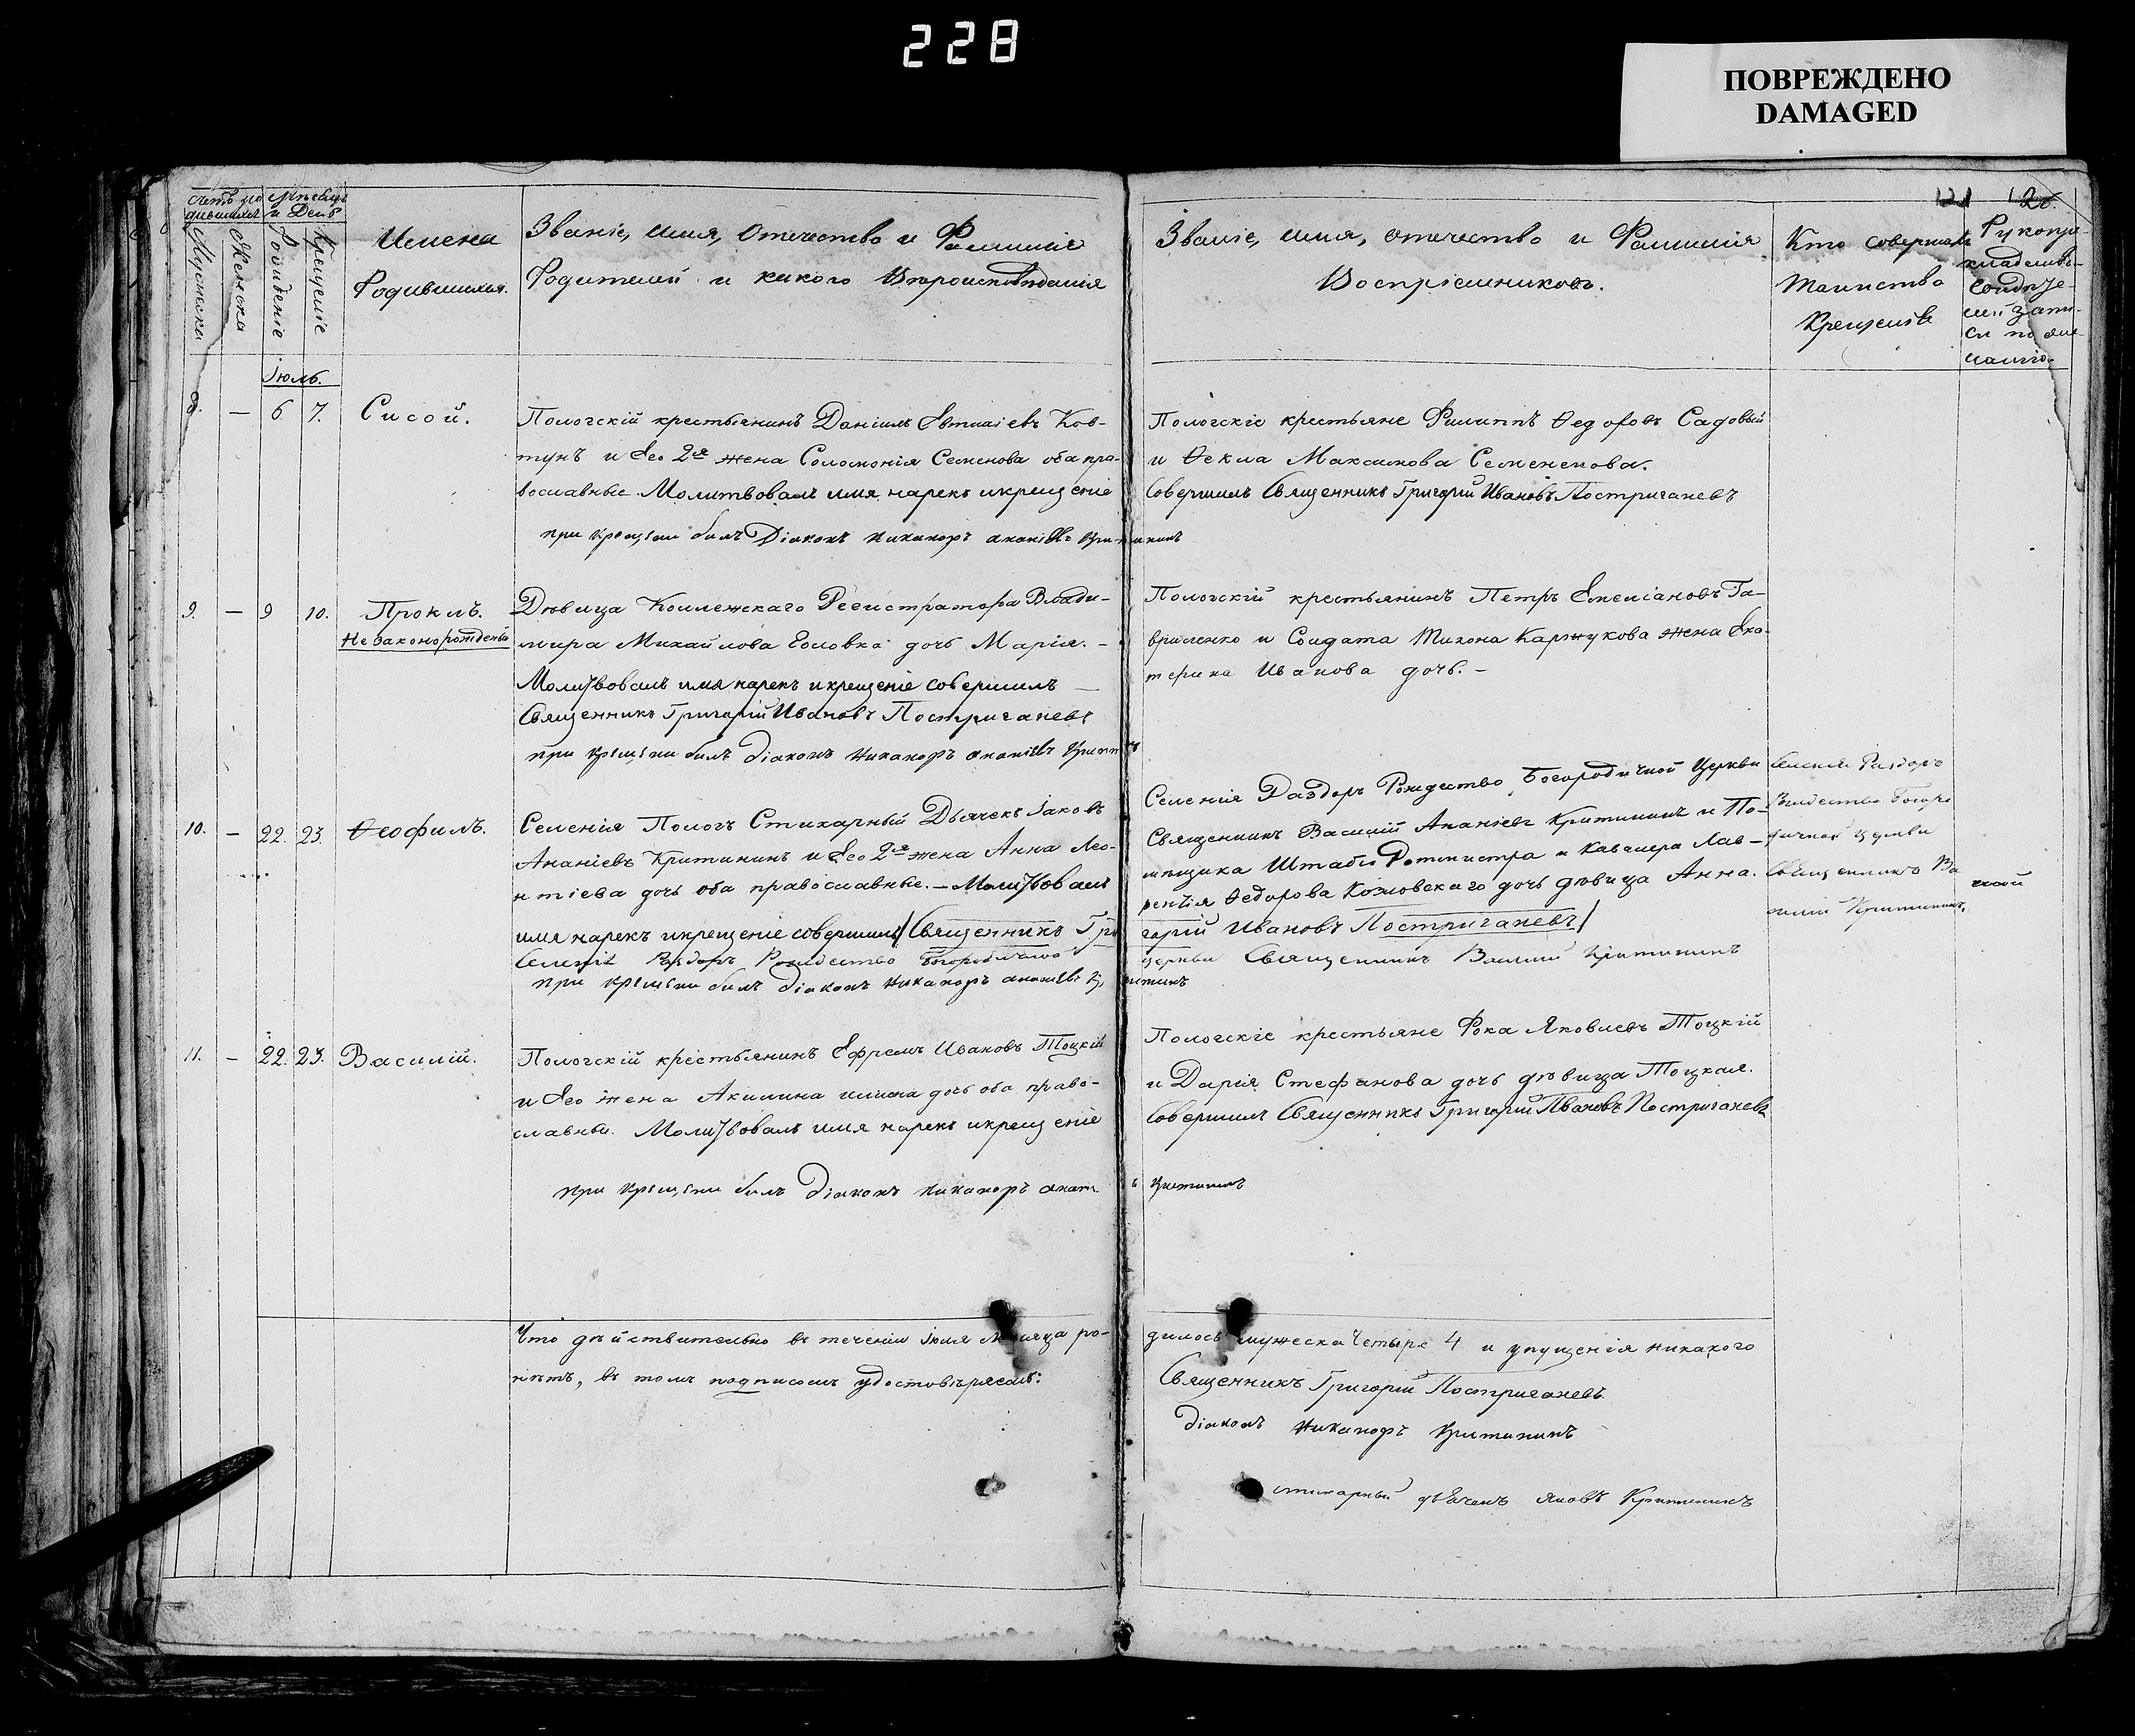 228
ПОВРЕЖДЕНО
DAMAGED
Счетъ ро
дившихся
Мѣсяцъ
и День
Мужеска
Женска
Рожденіе
Крещеніе
Имена
Родившихся.
Званіе, имя, Отечество и Фамилія
Родителей и какого Вѣроисповѣданія
Званіе, имя, отечество и Фамилія
Воспріемниковъ.
Кто совершалъ
Таинство
Крещенія
Рукопри-
кладство
свидѣте-
лей запи-
си по же-
ланію
Іюль.
8. — 6 7. Сисой.
Пологскій крестьянинъ Даніилъ Евтихіевъ Ков-
тунъ и Его 2я жена Соломонія Семенова оба пра-
вославные Молитвовалъ имя нарекъ и крещеніе
при крещени билъ Діаконъ Никаноръ ананіевъ Критининъ
Пологскіе крестьяне Филиппъ Ѳедоровъ Садовый
и Ѳекла Максимова Семененкова.
Совершилъ Священникъ Григорій Ивановъ Постригачевъ
9. — 9 10. Проклъ.
Не Законорожденый
Дѣвица Коллежскаго Регистратора Влади-
мира Михайлова Головка дочь Марія. —
Молитвовалъ имя нарекъ и крещеніе совершилъ —
Священникъ Григорій Ивановъ Постригачевъ
при крещени билъ діаконъ Никаноръ ананіевъ
Пологскій крестьянинъ Петръ Емеліановъ Га-
вриленко и Солдата Тихона Каржукова жена Ека-
терина Иванова дочь. —
10. — 22. 23. Ѳеофилъ.
Селенія Пологъ Стихарный Дьячекъ Іаковъ
Ананіевъ Критининъ и Его 2я жена Анна Лео-
нтіева дочь оба православные. — Молитвовалъ
имя нарекъ и крещеніе совершилъ Священникъ Гри
Селенія Раздоръ Рождество Богородичной
при крещени билъ діаконъ Никаноръ ананіевъ Критинъ
Селенія Раздоръ Рождество Богородичной Церкви
Священникъ Василій Ананіевъ Критининъ и По-
мѣщика Штабъ Ротмистра и Кавалера Лав-
рентія Ѳедорова Козловскаго дочь дѣвица Анна.
горій Ивановъ Постригачевъ
церкви Священникъ Василій Критининъ
Селенія Раздоръ
Рождество Богоро
дичной церкви
Священникъ Ва
силій Критининъ.
11. — 22. 23. Василій.
Пологскій крестьянинъ Ефремъ Ивановъ Тоцкій
и Его жена Акилина дочь оба право-
славные. Молитвовалъ имя нарекъ и крещеніе
при крещени билъ діаконъ Никаноръ анан. ъ Критининъ
Пологскіе крестьяне Фока Яковлевъ Тоцкій
и Дарія Стефанова дочь дѣвица Тоцкая.
Совершилъ Священникъ Григорій Ивановъ Постригачевъ
Что дѣйствительно въ теченіи Іюля Мѣсяца ро-
дилось мужеска Четыре 4 и упущенія никакого
нѣтъ, въ томъ подписомъ удостовѣряемъ:
Священникъ Григорій Постригачевъ.
діаконъ Никаноръ Критининъ
стихарный дьячекъ Яковъ Критининъ